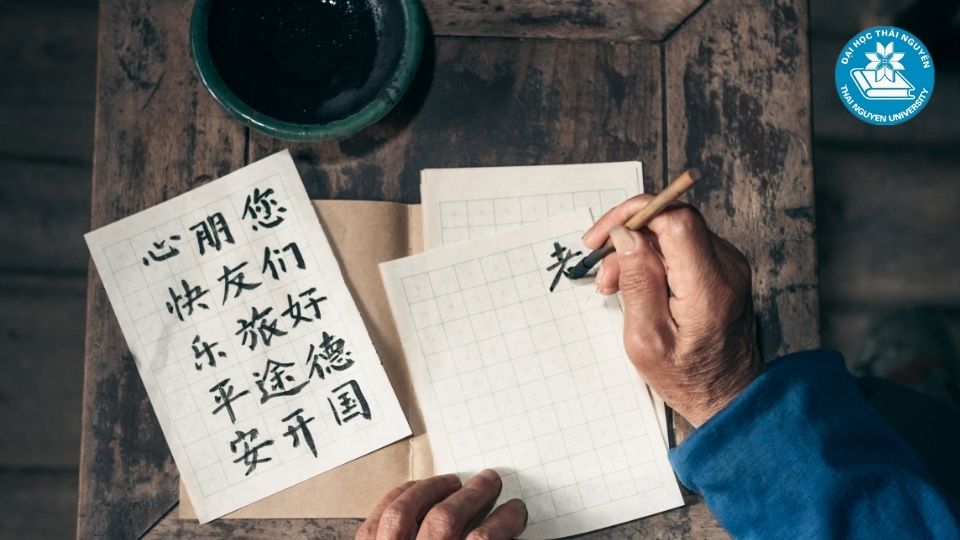 您们好德国
朋友旅途开
心快乐平安
老
ĐẠI HỌC THÁI NGUYÊN
THAI NGUYEN UNIVERSITY